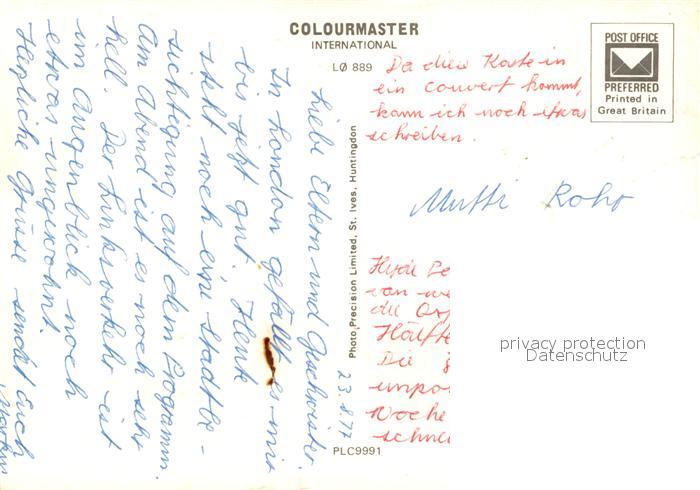 COLOURMASTER
INTERNATIONAL
LØ 889
POST OFFICE
PREFERRED
Printed in
Great Britain
Da diese Karte in
ein Couvert kommt,
kann ich noch etwas
schreiben.
Mutti Rohr
23.8.77
Liebe Eltern und Geschwister.
In London gefällt es mir
bis jetzt gut. Heute
steht noch eine Stadtbe-
sichtigung auf dem Programm.
Am Abend ist es noch sehr
hell. Der Linksverkehr ist
im Augenblick noch
etwas ungewohnt.
Herzliche Grüsse sendet Euch
Photo Precision Limited, St. Ives, Huntingdon
van
die
Hälfte
Die
Woche
privacy protection
Datenschutz
PLC9991